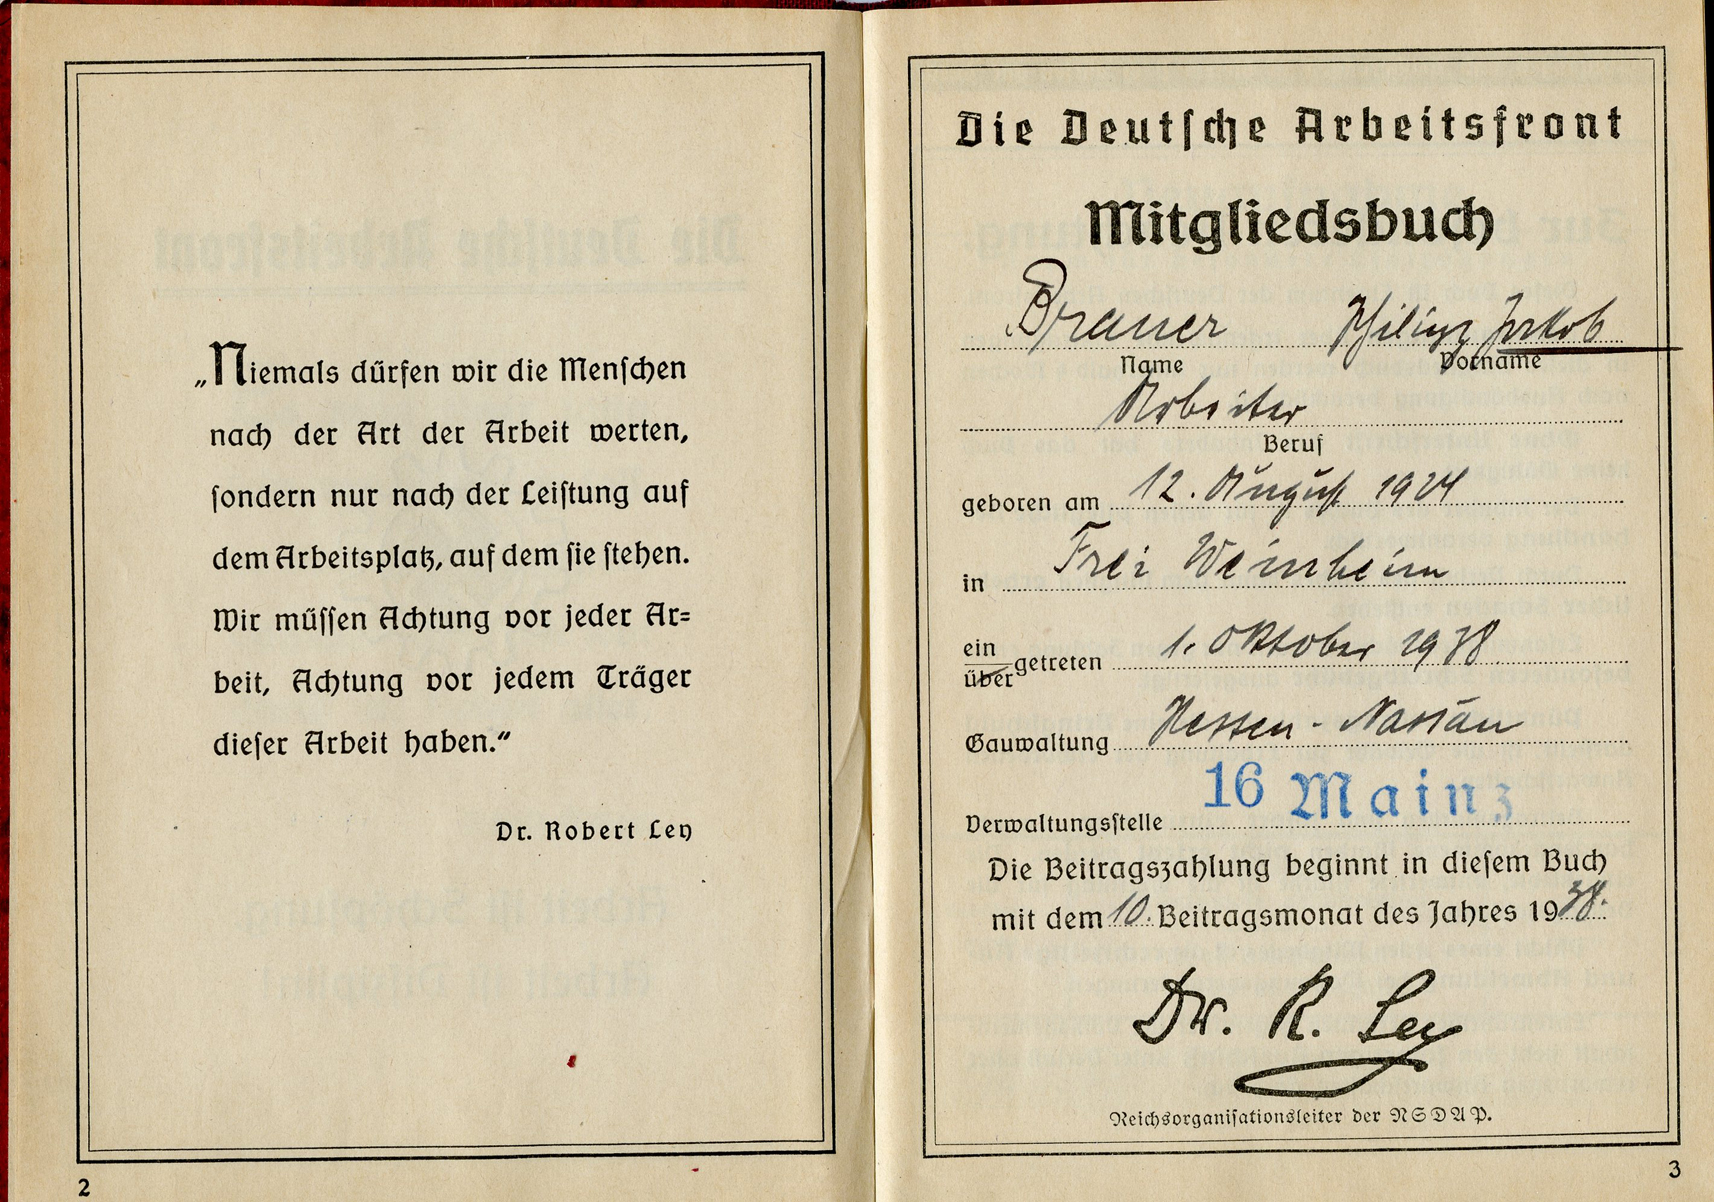 „Niemals dürfen wir die Menschen
nach der Art der Arbeit werten,
sondern nur nach der Leistung auf
dem Arbeitsplatz, auf dem sie stehen.
Wir müssen Achtung vor jeder Ar=
beit, Achtung vor jedem Träger
dieser Arbeit haben.“
Dr. Robert Ley
2
Die Deutsche Arbeitsfront
Mitgliedsbuch
Brauer Philipp Jakob
Name Vorname
Arbeiter
Beruf
geboren am 12. August 1924
in Frei Weinheim
ein
über getreten 1. Oktober 1938
Gauwaltung Hessen-Nassau
Verwaltungsstelle 16 Mainz
Die Beitragszahlung beginnt in diesem Buch
mit dem 10. Beitragsmonat des Jahres 1938.
Dr. R. Ley
Reichsorganisationsleiter der NSDAP.
3